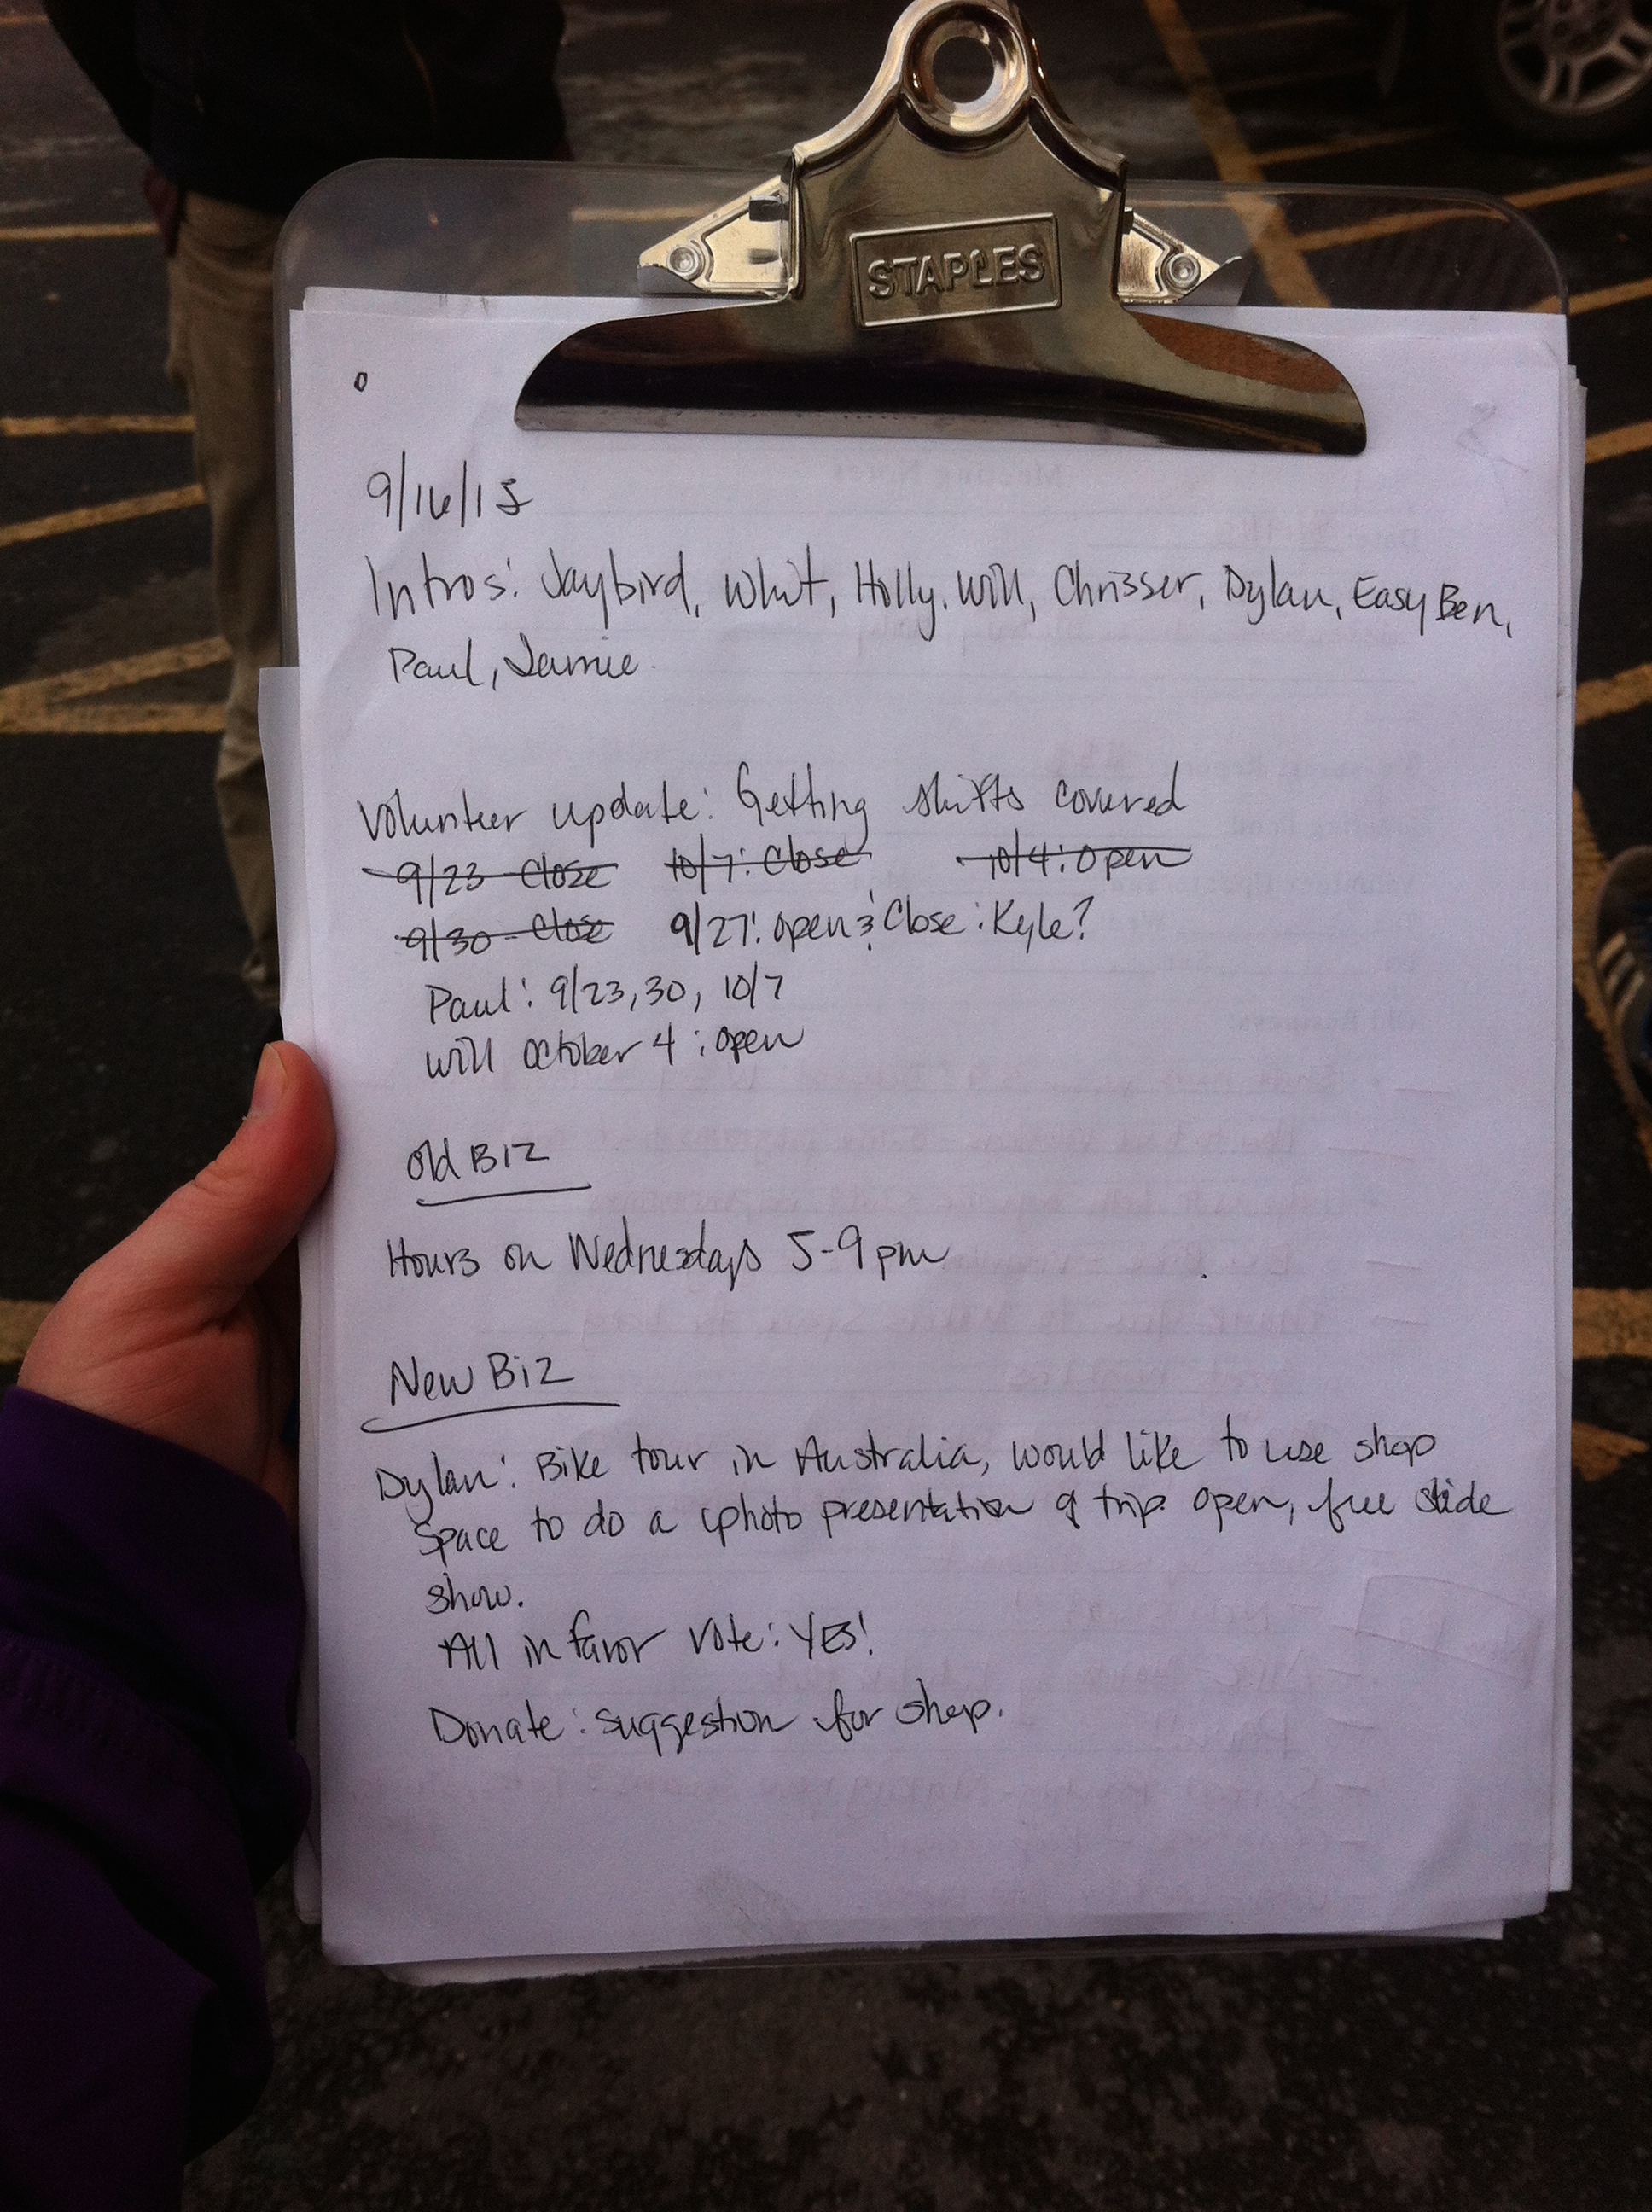 STAPLES
9/16/15
Intros: Jaybird, Whit, Holly, Will, Chrisser, Dylan, Easy Ben,
Paul, Jamie.
Volunteer update: Getting shifts covered
9/23 Close 10/7: Close 10/4: Open
9/30 - Close 9/27: Open & Close: Kyle?
Paul: 9/23, 30, 10/7
Will October 4: open
Old Biz
Hours on Wednesdays 5-9 pm
New Biz
Dylan: Bike tour in Australia, would like to use shop
space to do a photo presentation of trip. Open, free slide
show.
All in favor vote: YES!
Donate: suggestion for shop.